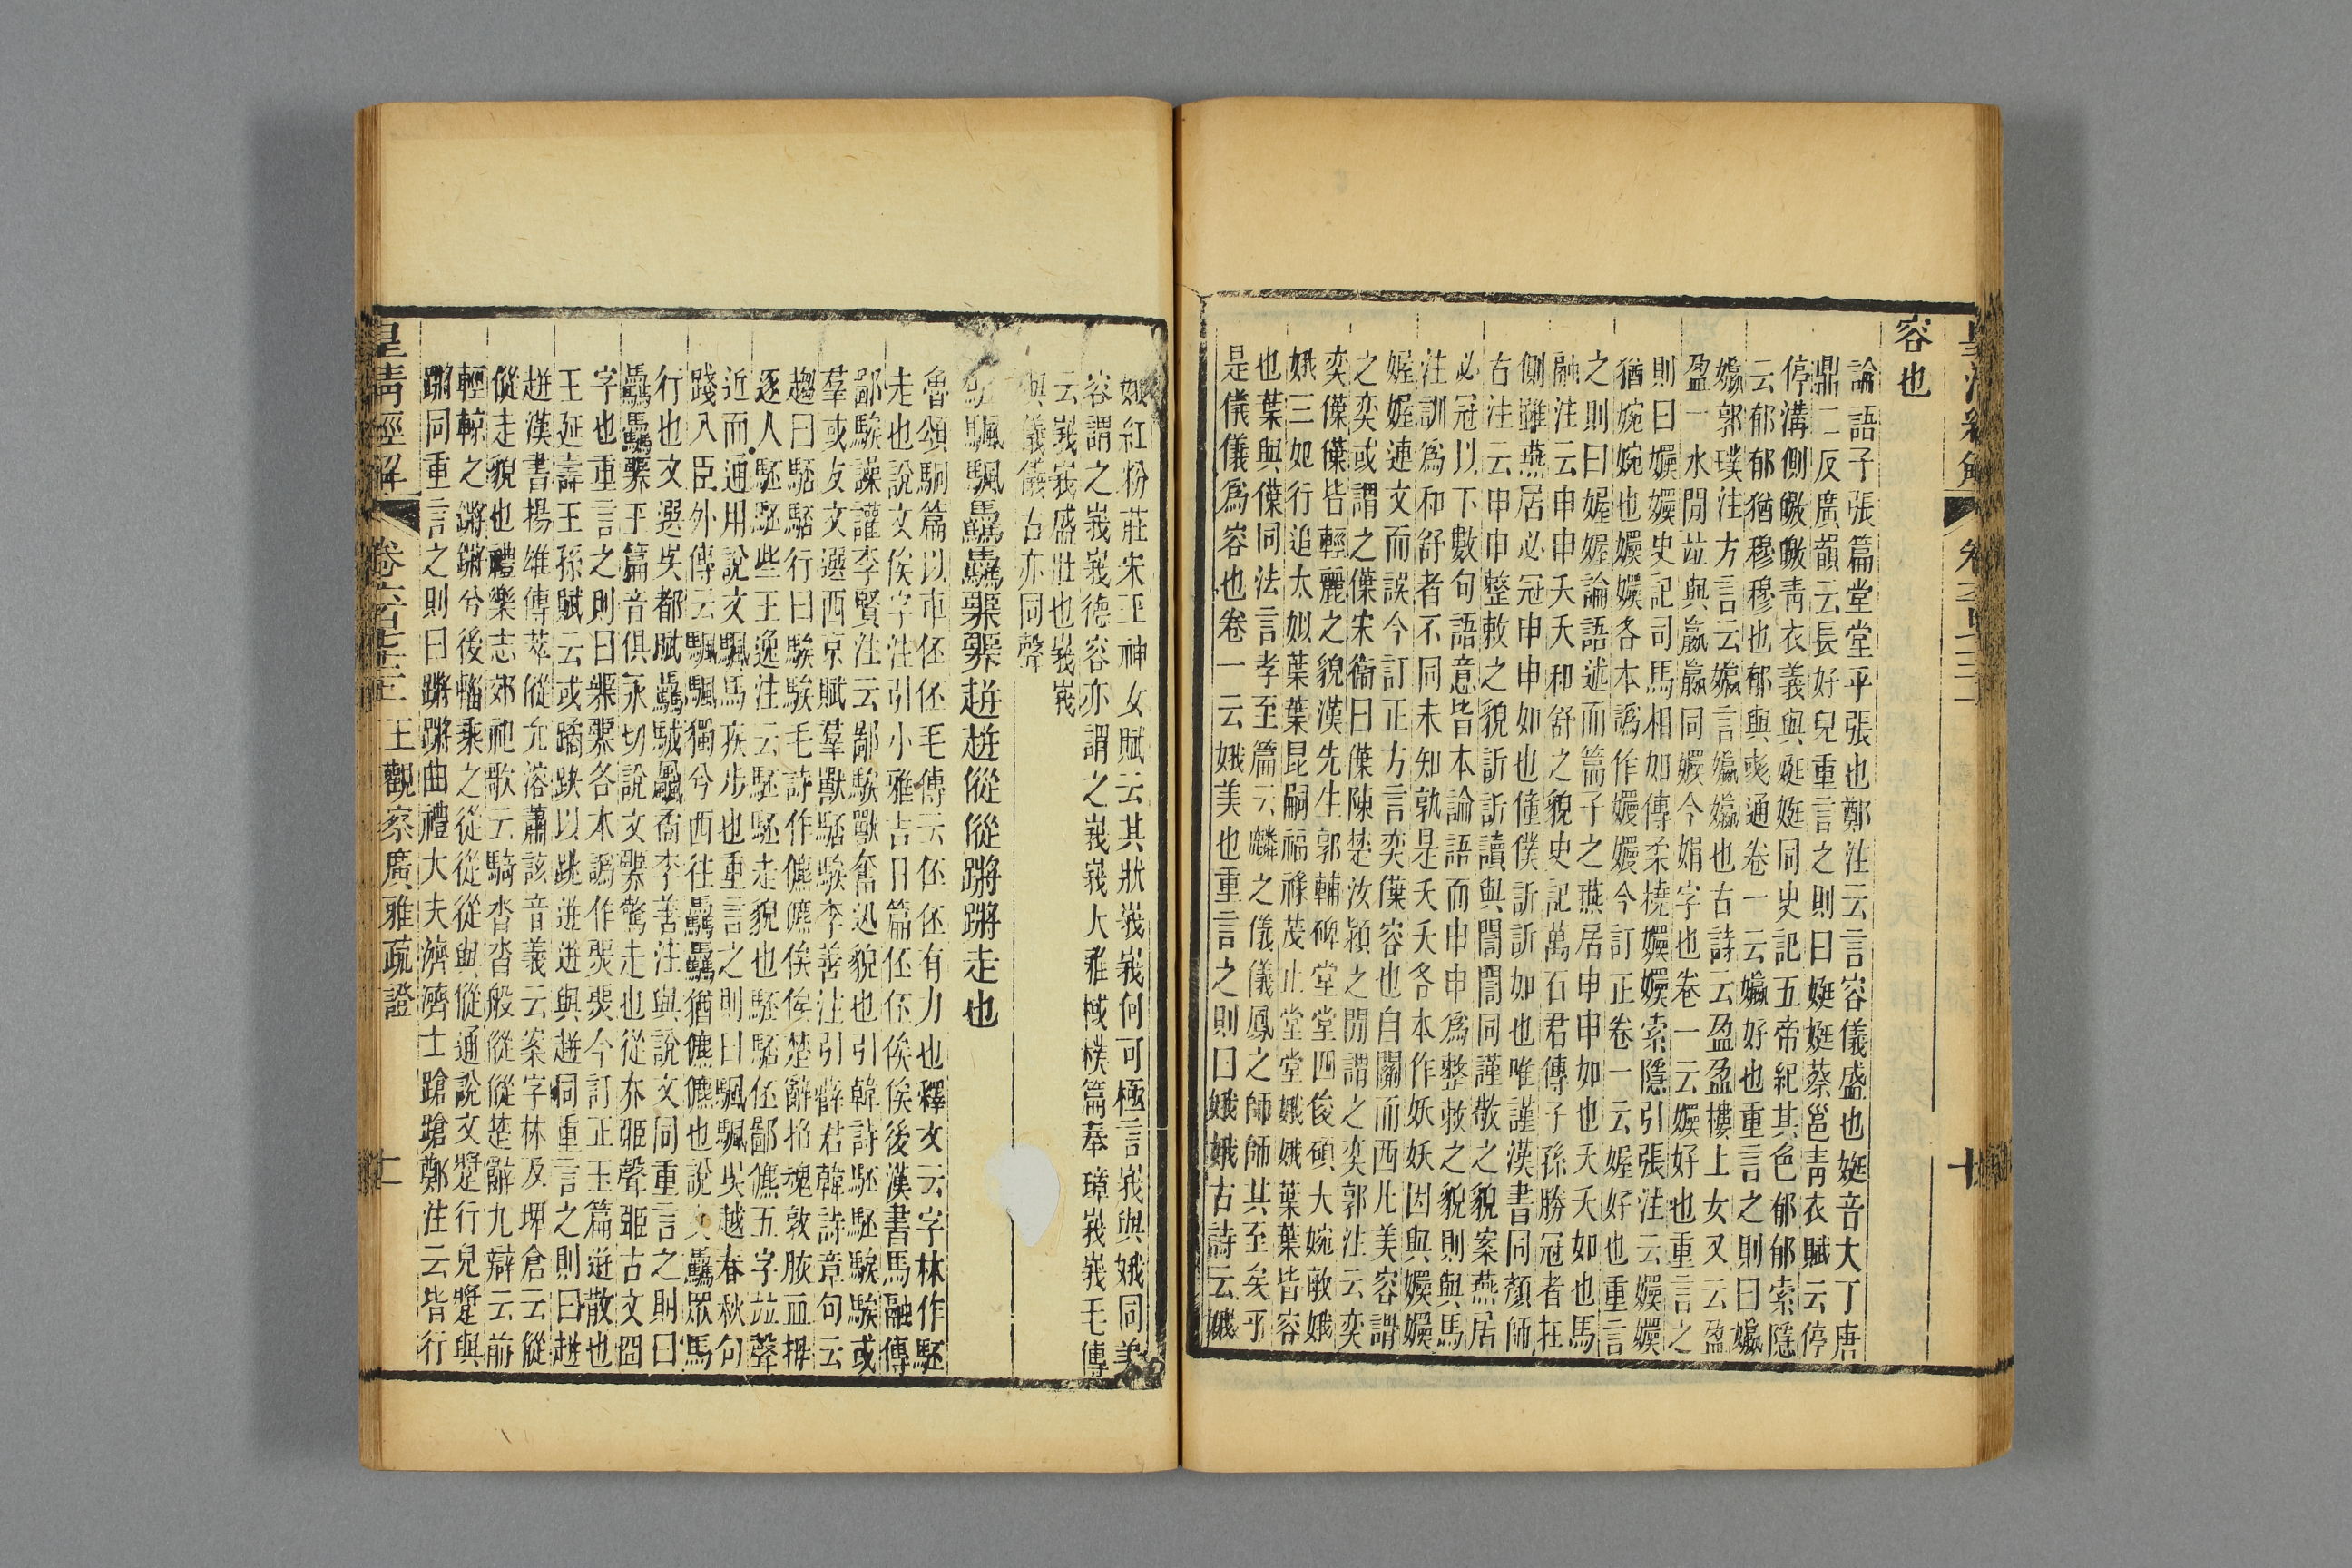 容也
論語子張篇堂堂乎張也鄭注云言容儀盛也娗音大丁唐
鼎二反廣韻云長好皃重言之則曰娗娗蔡邕靑衣賦云停
停溝側噭噭靑衣義與娗娗同史記五帝紀其色郁郁索隱
云郁郁猶穆穆也郁與彧通卷一云㜲好也重言之則曰㜲
㜲郭璞注方言云㜲言㜲㜲也古詩云盈盈樓上女又云盈
盈一水閒竝與嬴嬴同嬽今娟字也卷一云嬽好也重言之
則曰嬽嬽史記司馬相如傳柔橈嬽嬽索隱引張注云嬽嬽
猶婉婉也嬽嬽各本譌作嬛嬛今訂正卷一云媉好也重言
之則曰媉媉論語述而篇子之燕居申申如也夭夭如也馬
融注云申申夭夭和舒之貌史記萬石君傳子孫勝冠者在
側雖燕居必冠申申如也僮僕訢訢如也唯謹漢書同顏師
古注云申申整敕之貌訢訢讀與誾誾同謹敬之貌案燕居
必冠以下數句語意皆本論語而申申爲整敕之貌則與馬
注訓爲和舒者不同未知孰是夭夭各本作妖妖因與嬽嬽
媉媉連文而誤今訂正方言奕僷容也自關而西凡美容謂
之奕或謂之僷宋衞曰僷陳楚汝潁之閒謂之奕郭注云奕
奕僷僷皆輕麗之貌漢先生郭輔碑堂堂四俊碩大婉敏娥
娥三妃行追大姒葉葉昆嗣福祿茂止堂堂娥娥葉葉皆容
也葉與僷同法言孝至篇云麟之儀儀鳳之師師其至矣乎
是儀儀爲容也卷一云娥美也重言之則曰娥娥古詩云娥
娥紅粉莊宋玉神女賦云其狀峩峩何可極言峩與娥同美
容謂之峩峩德容亦謂之峩峩大雅棫樸篇奉璋峩峩毛傳
云峩峩盛壯也峩峩
與儀儀古亦同聲
颿颿驫驫猋猋趚趚傱傱蹡蹡走也
魯頌駉篇以車伾伾毛傳云伾伾有力也釋文云字林作駓
走也說文俟字注引小雅吉日篇伾伾俟俟後漢書馬融傳
鄙騃譟讙李賢注云鄙騃獸奮迅貌也引韓詩駓駓騃騃或
羣或友文選西京賦羣獸駓騃李善注引薛君韓詩章句云
趨曰駓駓行曰騃騃毛詩作儦儦俟俟楚辭招魂敦脄血拇
逐人駓駓些王逸注云駓駓走貌也駓駓伾鄙儦五字竝聲
近而通用說文颿馬疾步也重言之則曰颿颿吳越春秋句
踐入臣外傳云颿颿獨兮西往驫驫猶儦儦也說文驫眾馬
行也文選吳都賦驫駥飍矞李善注與說文同重言之則曰
驫驫猋玉篇音俱永切說文猋驚走也從夰𦣞聲𦣞古文囧
字也重言之則曰猋猋各本譌作㷭㷭今訂正玉篇逬散也
王延壽王孫賦云或蹻趹以跳逬逬與趚同重言之則曰趚
趚漢書揚雄傳萃傱允溶蕭該音義云案字林及埤倉云傱
傱走貌也禮樂志郊祀歌云騎沓沓般傱傱楚辭九辯云前
輕輬之鏘鏘兮後輜乘之從從從與傱通說文蹩行皃蹩與
蹡同重言之則曰蹡蹡曲禮大夫濟濟士蹌蹌鄭注云皆行
皇淸經解 卷六百七十三 王觀察廣雅疏證